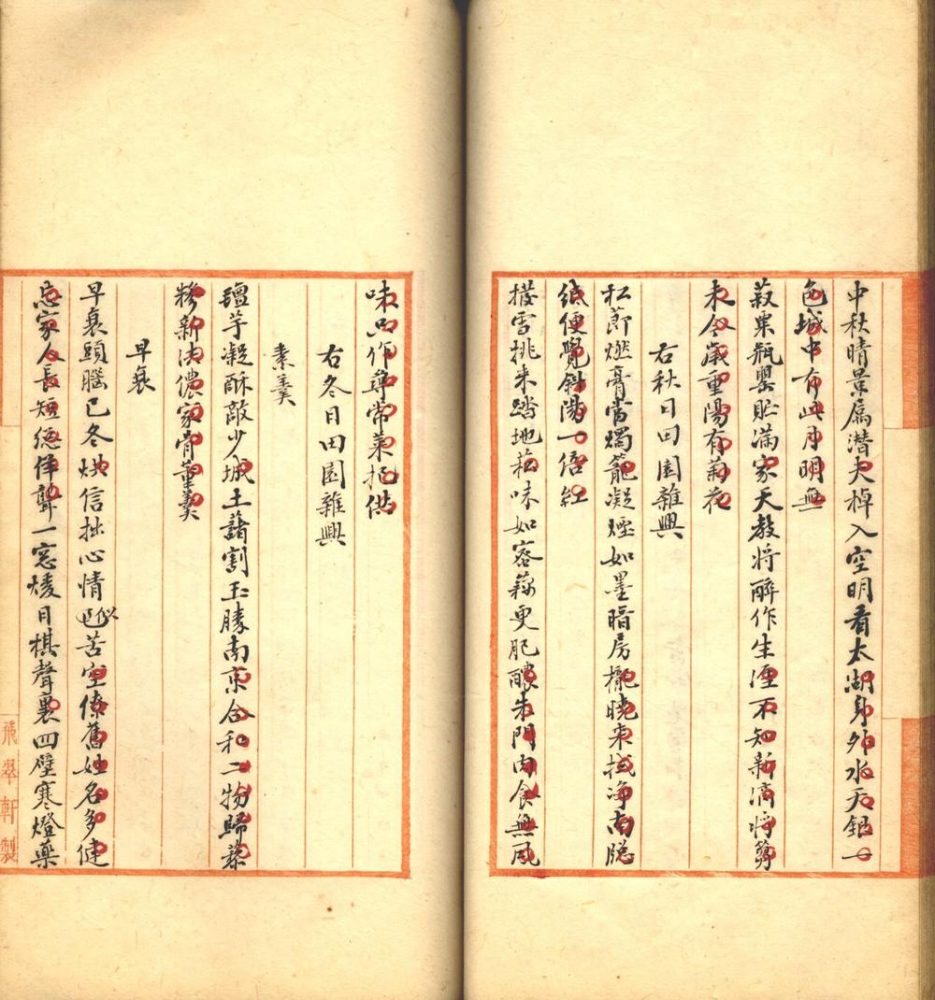 中秋晴景属潛夫棹入空明看太湖身外水天銀一
色城中有此月明無
菽粟瓶罌貯滿家天教將醉作生涯不知新滴將篘
未今歲重陽有菊花
右秋日田園雜興
松節燃膏當燭籠凝煙如墨暗房櫳曉來拭淨南牕
紙便覺斜陽一倍紅
撥雪挑来踏地菘味如蜜藕更肥醲朱門肉食無風
味只作尋常菜把供
右冬日田園雜興
素羹
氊芋凝酥敵少城土藷割玉勝南京合和二物歸藜
糝新法儂家骨董羹
早衰
早衰頭腦已冬烘信拙心情近似苦空僚舊姓名多健
忘家人長短總佯聾一窓煖日棋聲裏四壁寒燈藥
飛翠軒製